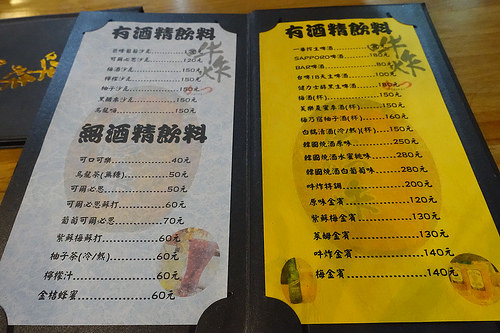 有酒精飲料
可爾必思沙瓦......120元
梅酒沙瓦......150元
檸檬沙瓦......150元
柚子沙瓦......150元
黑醋栗沙瓦......150元
烏龍梅......150元
無酒精飲料
可口可樂......40元
烏龍茶(無糖)......50元
可爾必思......50元
可爾必思蘇打......60元
葡萄可爾必思......70元
紫蘇梅蘇打......60元
柚子茶(冷/熱)......60元
檸檬汁......60元
金桔蜂蜜......60元
有酒精飲料
一番搾生啤酒
SAPPORO啤酒......180元
BAR啤酒......80元
台啤18天生啤酒......100元
健力士黑生啤酒......180元
梅酒(杯)......150元
芙樂覓蜜果酒(杯)......150元
梅乃宿柚子酒(杯)......160元
白鶴清酒(冷/熱)(杯)......150元
韓國燒酒原味......250元
韓國燒酒水蜜桃味......280元
韓國燒酒白葡萄味......280元
吽炸特調......200元
原味金賓......120元
紫蘇梅金賓......130元
萊姆金賓......130元
吽炸金賓......140元
梅金賓......140元